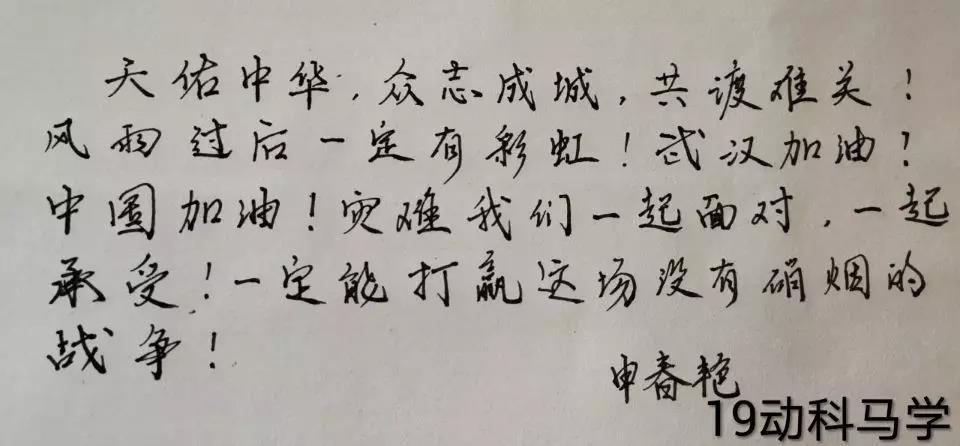 天佑中华,众志成城,共渡难关!
风雨过后一定有彩虹!武汉加油!
中国加油!灾难我们一起面对,一起
承受!一定能打赢这场没有硝烟的
战争!
申春艳
19动科马学